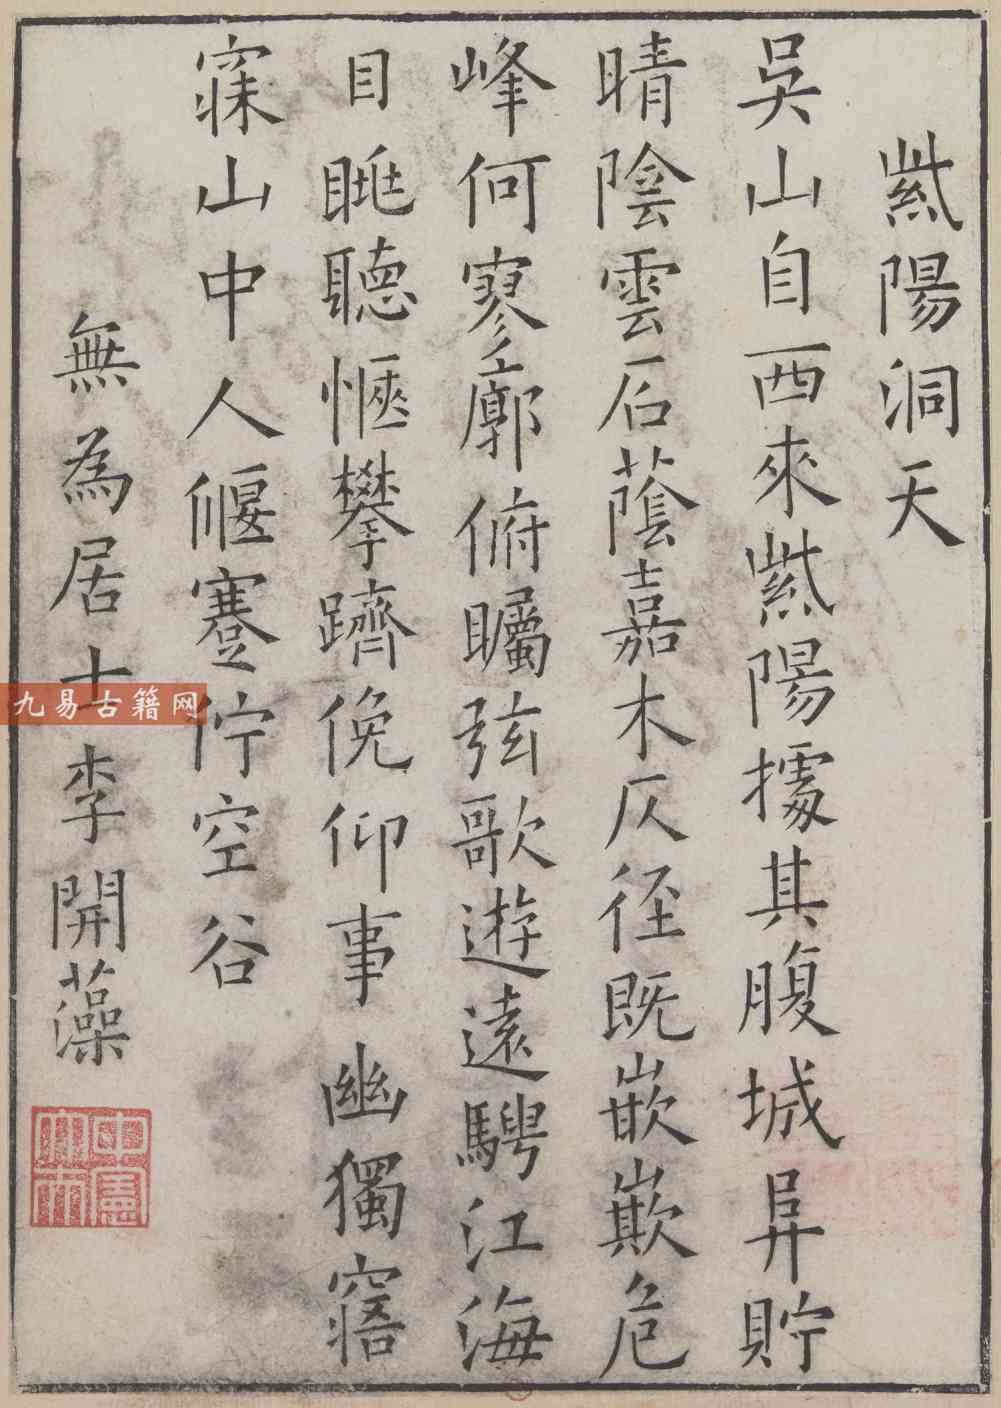 紫陽洞天
吳山自西來紫陽據其腹城㠯貯
晴陰雲石蔭嘉木仄徑既嵌欹危
峰何寥廓俯矚弦歌遊遠騁江海
目眺聽愜攀躋俛仰事幽獨寤
寐山中人偃蹇佇空谷
無為居士李開藻
九易古籍网